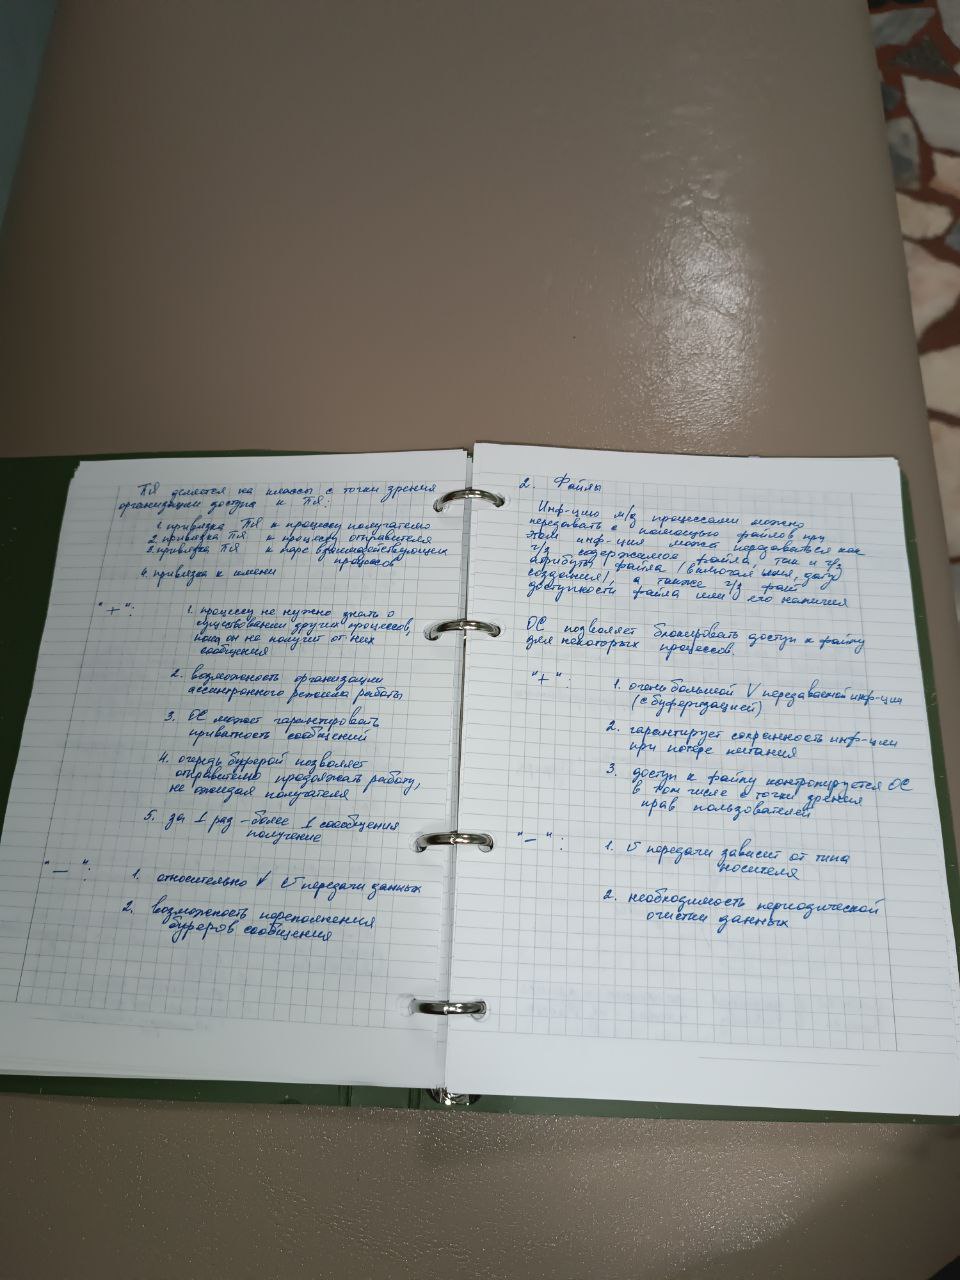 ПЯ делятся на классы с точки зрения
организации доступа к ПЯ:
1. привязка ПЯ к процессу получателю
2. привязка ПЯ к процессу отправителя
3. привязка ПЯ к паре взаимодействующих
процессов
4. привязка к имени
"+":
1. процессу не нужно знать о
существовании других процессов,
пока он не получит от них
сообщения
2. возможность организации
ассинхронного режима работы
3. ОС может гарантировать
приватность сообщений
4. очередь буферой позволяет
отправителю продолжать работу,
не ожидая получателя
5. за 1 раз - более 1 сообщения
получение
"—":
1. относительно ↓ v передачи данных
2. возможность переполнения
буферов сообщения
2. Файлы
Инф-цию м/д процессами можно
передавать с помощью файлов при
этом инф-ция может передаваться как
ч/з содержимое файла, так и ч/з
атрибуты файла (включая имя, дату
создания), а также ч/з факт
доступности файла или его наличия
ОС позволяет блокировать доступ к файлу
для некоторых процессов.
"+":
1. очень большой V передаваемой инф-ции
(с буферизацией)
2. гарантирует сохранность инф-ции
при потере питания
3. доступ к файлу контролируется ОС
в том числе с точки зрения
прав пользователей
"—":
1. v передачи зависит от типа
носителя
2. необходимость периодической
очистки данных